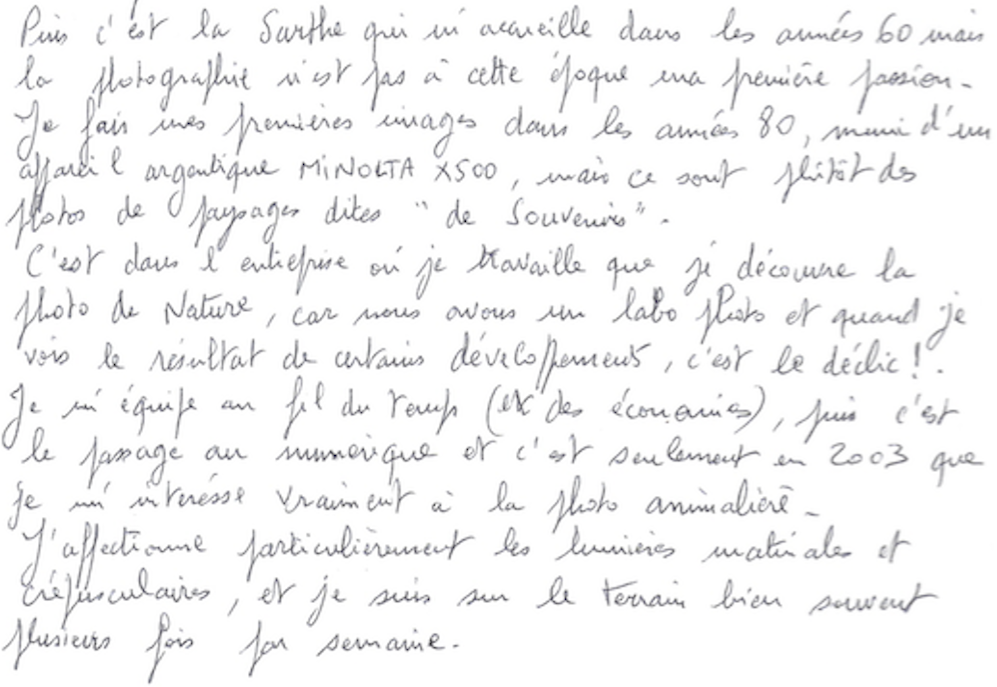 Puis c'est la Sarthe qui m'accueille dans les années 60 mais
la photographie n'est pas à cette époque ma première passion.
Je fais mes premières images dans les années 80, muni d'un
appareil argentique MiNOLTA X500, mais ce sont plutôt des
photos de paysages dites "de Souvenirs".
C'est dans l'entreprise où je travaille que je découvre la
photo de Nature, car nous avons un labo photo et quand je
vois le résultat de certains développements, c'est le déclic!.
Je m'équipe au fil du temps (et des économies), puis c'est
le passage au numérique et c'est seulement en 2003 que
je m'intéresse vraiment à la photo animalière.
J'affectionne particulièrement les lumières matinales et
crépusculaires, et je suis sur le terrain bien souvent
plusieurs fois par semaine.